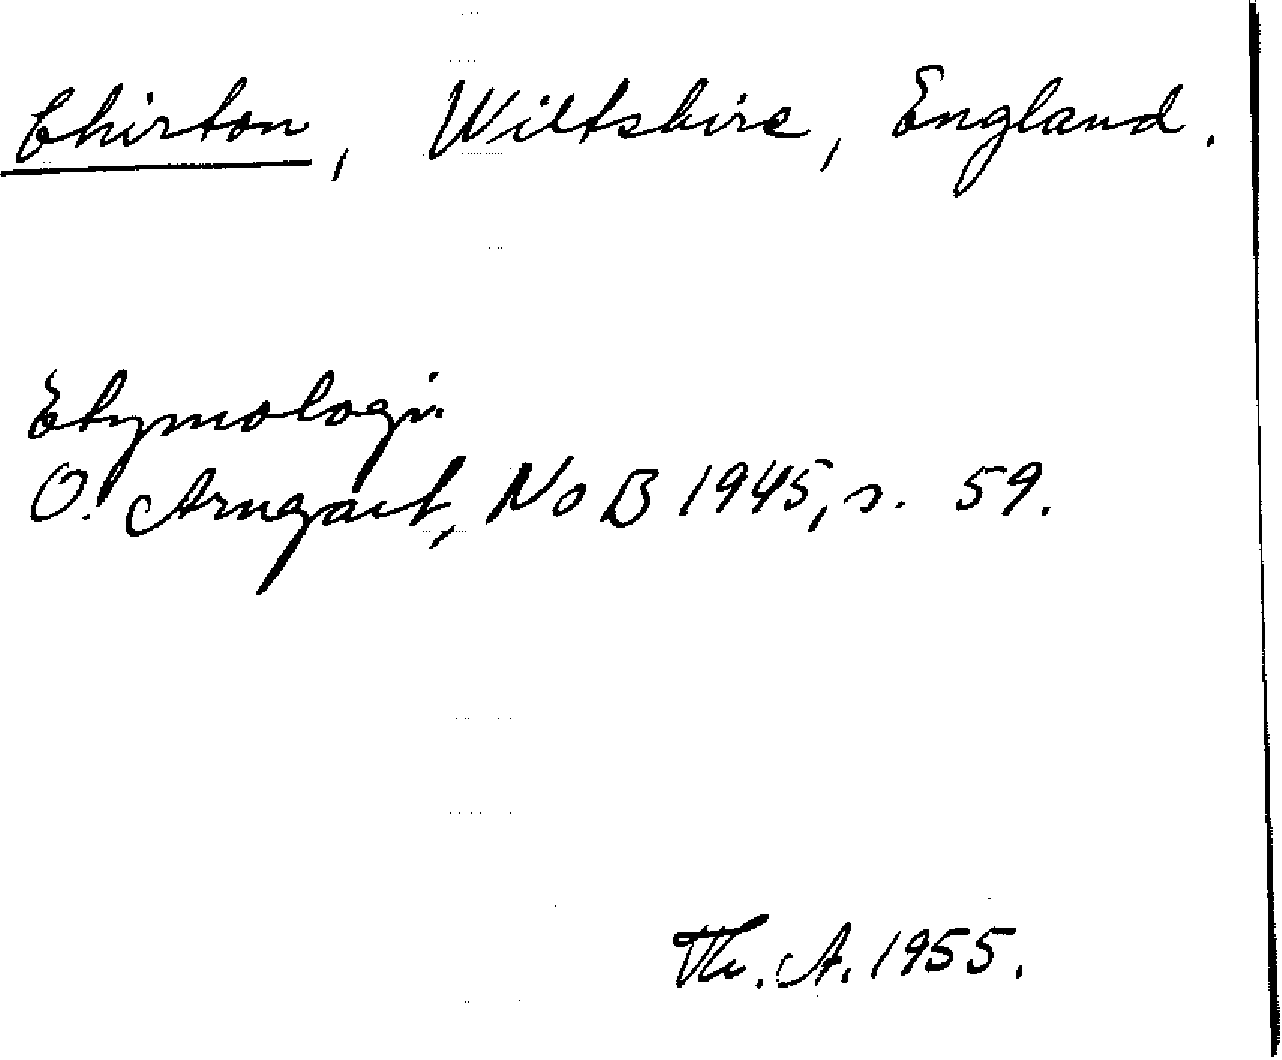 Chirton, Wiltshire, England.
Etymologi.
O. Arngart, NoB 1945, s. 59.
Th. A. 1955.